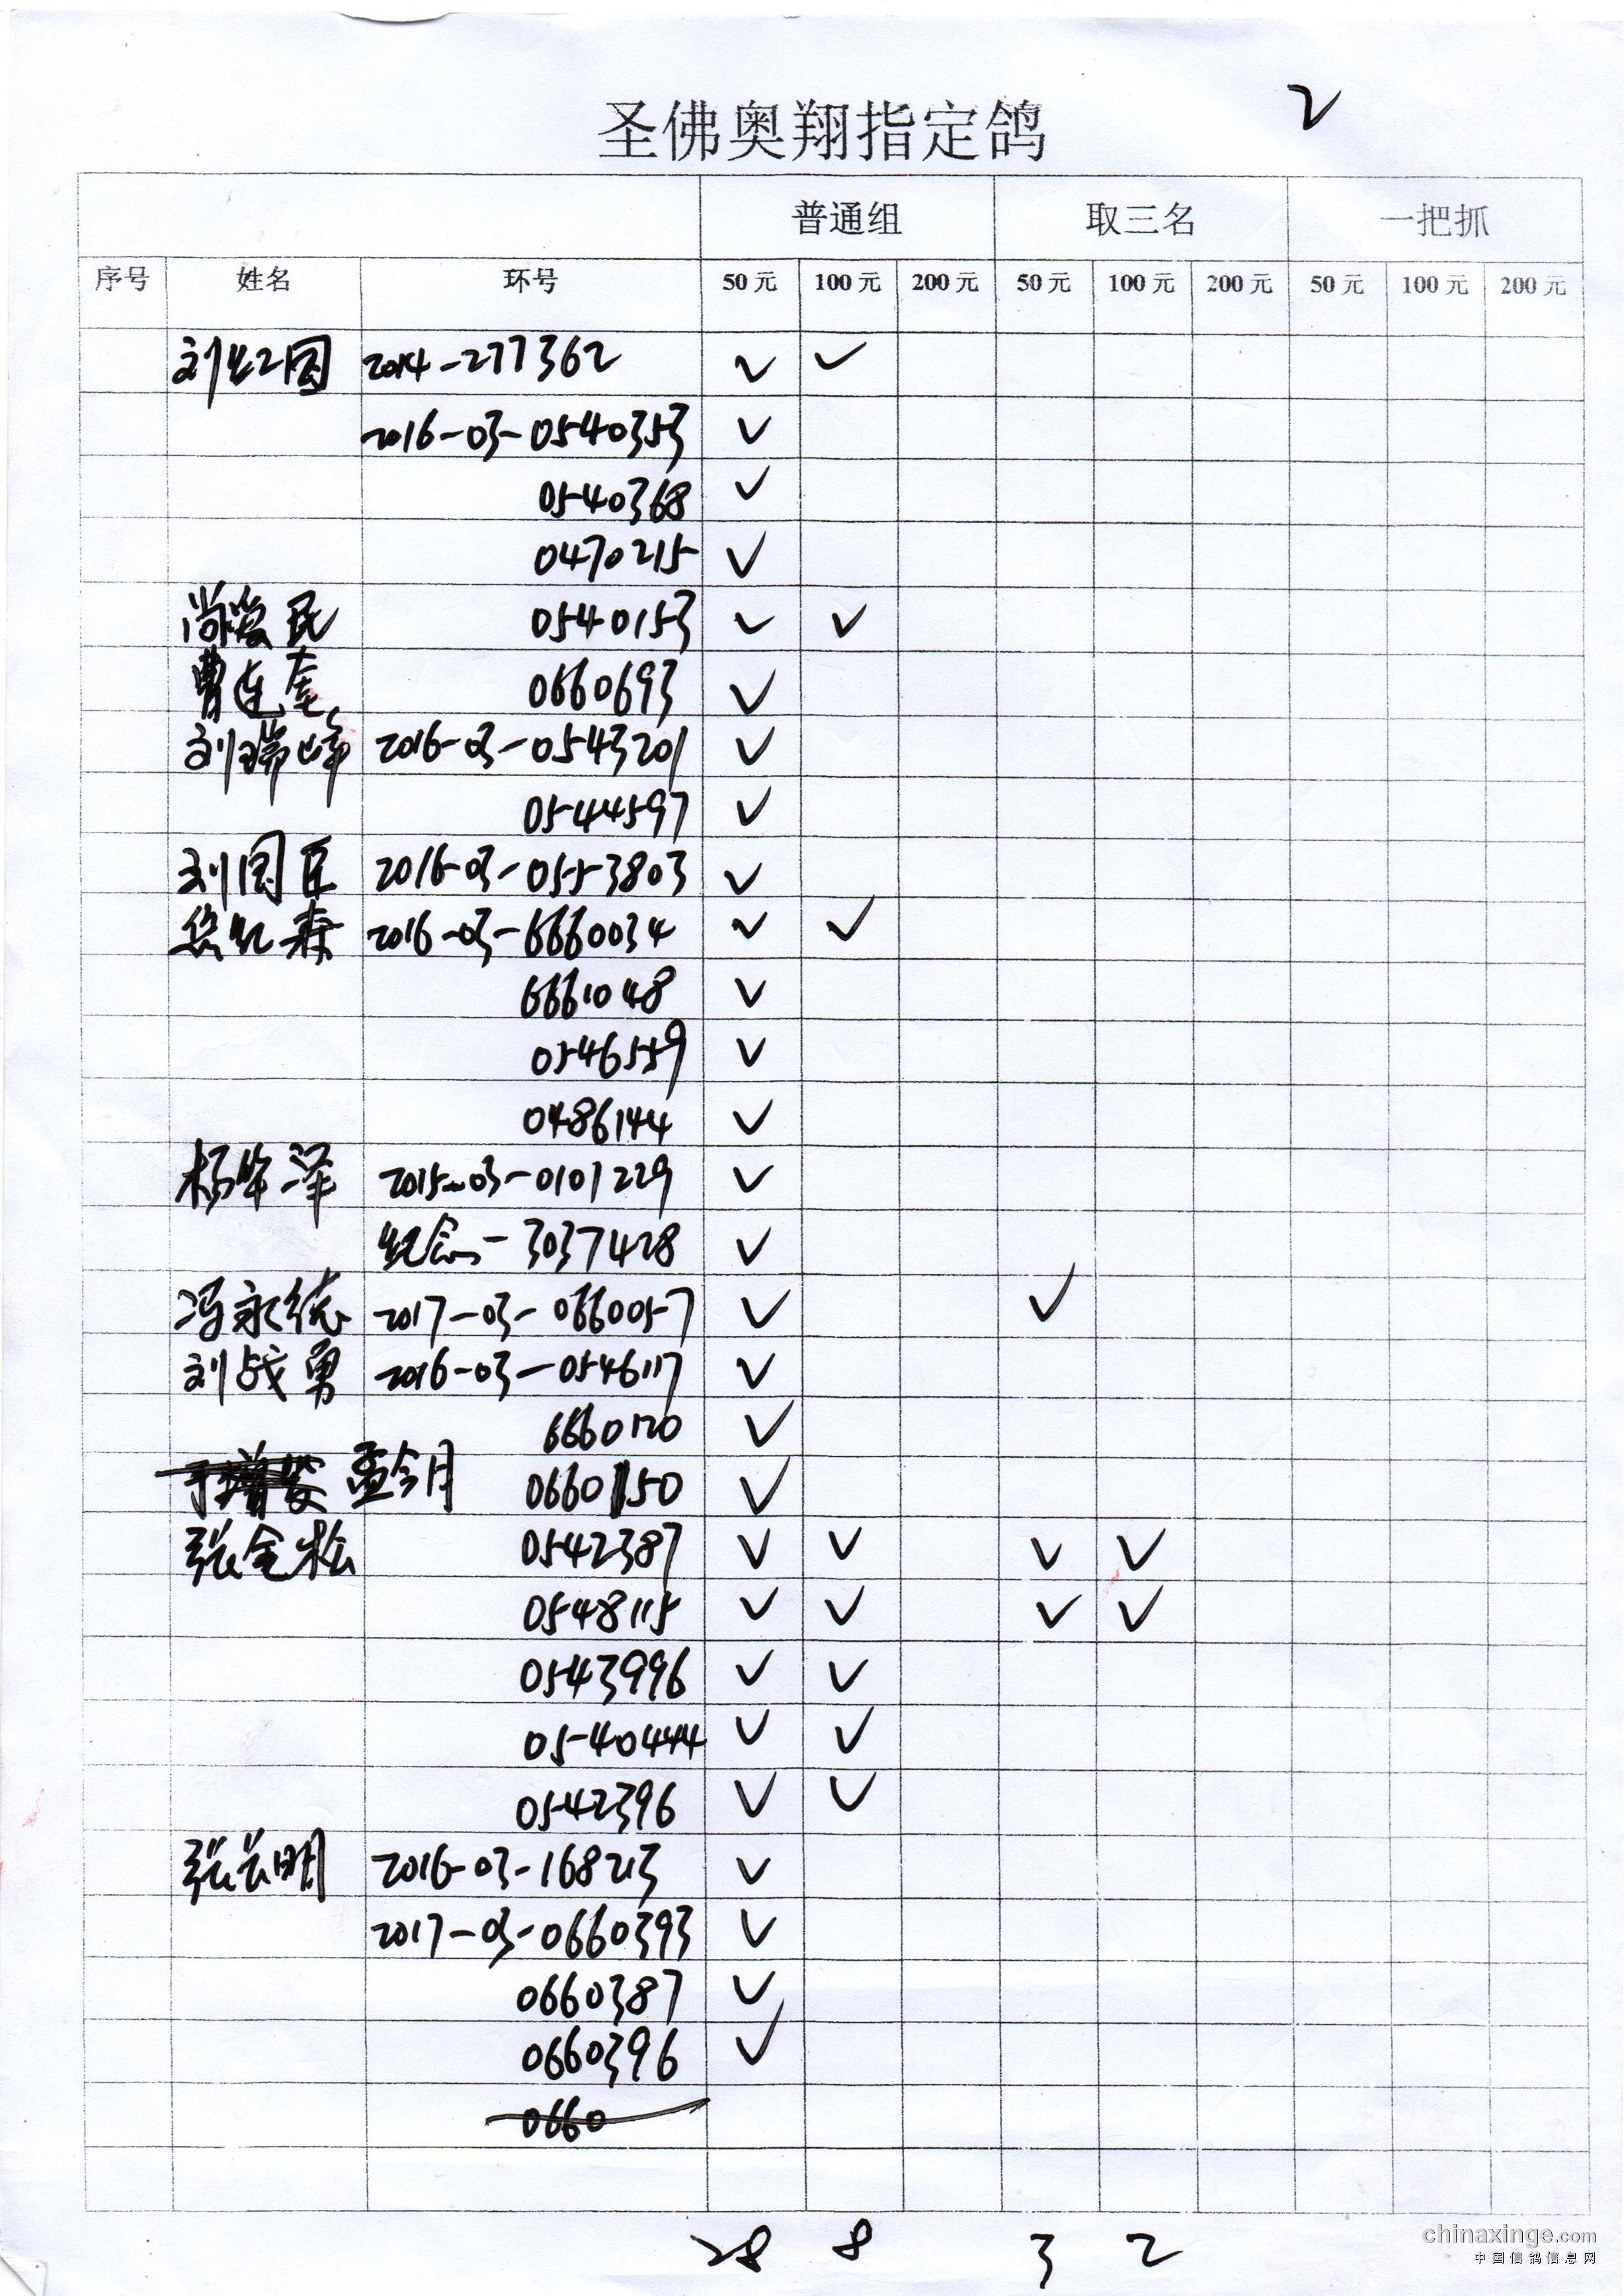 2
圣佛奥翔指定鸽
普通组 取三名 一把抓
序号 姓名 环号 50元 100元 200元 50元 100元 200元 50元 100元 200元
刘红国 2014-277362 ✓ ✓
2016-03-0540353 ✓
0540368 ✓
0470215 ✓
尚爱民 0540153 ✓ ✓
曹连奎 0660693 ✓
刘瑞峰 2016-03-0543201 ✓
0544597 ✓
刘国臣 2016-03-0553803 ✓
2016-03-6660034 ✓ ✓
6661048 ✓
0546559 ✓
0486144 ✓
杨华泽 2015-03-0101229 ✓
纪念-3037428 ✓
冯永统 2017-03-0660057 ✓ ✓
刘战勇 2016-03-0546117 ✓
6660120 ✓
孟令月 0660150 ✓
张金松 0542387 ✓ ✓ ✓ ✓
0548115 ✓ ✓ ✓ ✓
0543996 ✓ ✓
0540444 ✓ ✓
0542396 ✓ ✓
张长明 2016-03-168213 ✓
2017-03-0660393 ✓
0660387 ✓
0660396 ✓
0660
28 8 3 2
chinaxinge.com
中国信鸽信息网